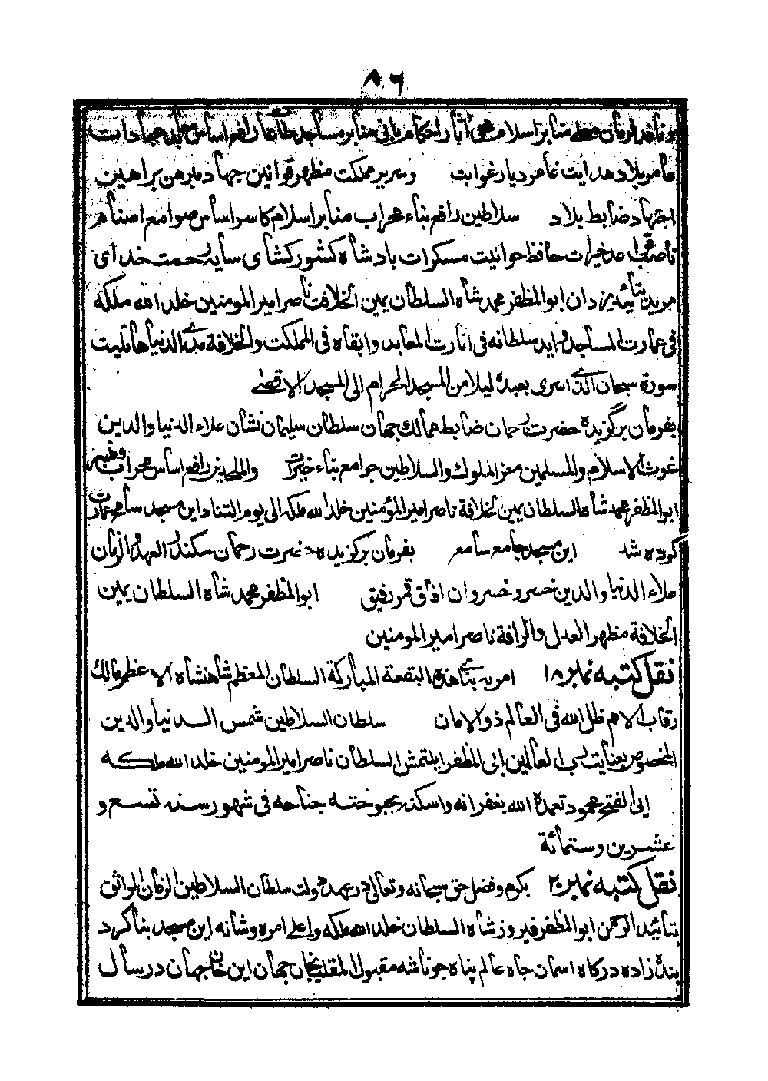 ۸۶
منابر اسلام محی آثار احکام بانی منابر مساجد طاعات رافع اساس
عامر بلاد هدایت غامر دیار غوایت وسریر مملکت مظهر قوانین جهاد مبرهن براهین
اجتهاد ضابط بلاد سلاطین رافع بناء محراب منابر اسلام کاسر اساس صوامع اصنام
حافظ مسکرات بادشاه کشور کشای سایه رحمت خدای
موید بتائید یزدان ابو المظفر محمد شاه السلطان یمین الخلافت ناصر امیر المومنین خلد الله ملکه
فی عمارت المساجد و اید سلطانه فی انارت المعابد وابقاه فی المملکت والخلافة الدنیا ما تلیت
سورة سبحان الذی اسری بعبده لیلا من المسجد الحرام الی المسجد الاقصی
بفرمان برگزیده حضرت رحمان ضابط ممالک جهان سلطان سلیمان نشان علاء الدنیا والدین
غوث الاسلام والمسلمین معز الملوک والسلاطین جوامع بناء خیرات والملحدین رافع اساس محراب
ابو المظفر محمد شاه السلطان یمین الخلافة ناصر امیر المؤمنین خلد الله ملکه الی یوم التناد این مسجد
کوده شد این مسجد جامع سامع بفرمان برگزیده حضرت رحمان سکندر العهد والزمان
علاء الدنیا والدین خسرو خسروان ابو المظفر محمد شاه السلطان یمین
الخلافة مظهر العدل والرافة ناصر امیر المومنین
نقل کتبه نمبر ۱۸ امر ببناء هذه البقعة المبارکة السلطان المعظم شاهنشاه الاعظم مالک
رقاب الامم ظل الله فی العالم ذو الامان سلطان السلاطین شمس الدنیا والدین
المخصوص بعنایت رب العالمین ابی المظفر ایلتمش السلطان ناصر امیر المومنین خلد الله ملکه
ابی الفتح محمود تغمده الله بغفرانه واسکنه بحبوحته جنانه فی شهور سنه تسع و
عشرین وستمائة
نقل کتبه نمبر ۲۰ بکرم وفضل حق سبحانه وتعالی در عهد دولت سلطان السلاطین الزمان الواثق
بتائید الرحمن ابو المظفر فیروز شاه السلطان خلد الله ملکه واعلی امره وشانه این مسجد بنا کرد
بنده زاده درگاه اسمان جاه عالم پناه جونانشه مقبول المقلب خان جهان ابن خان جهان در سال